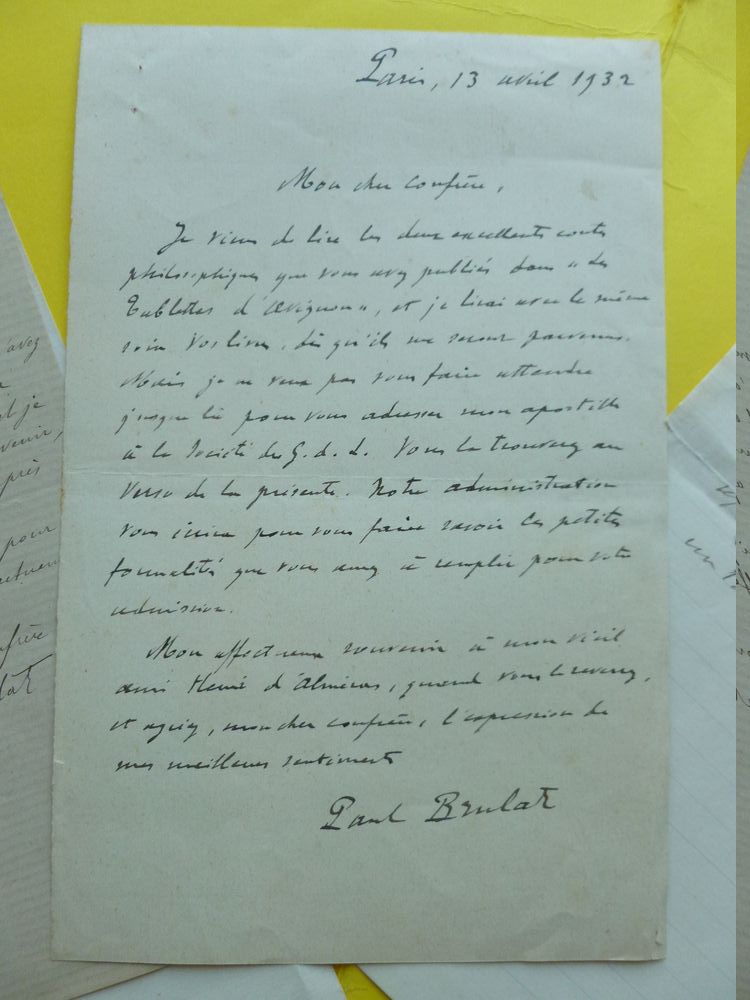 Paris, 13 avril 1932
Mon cher confrère,
Je viens de lire les deux excellents contes
philosophiques que vous avez publiés dans "Les
Tablettes d'Avignon", et je lirai avec le même
soin vos livres, dès qu'ils me seront parvenus.
Mais je ne veux pas vous faire attendre
jusque là pour vous adresser mon apostille
à la Société des G. d. L. Vous la trouverez au
verso de la présente. Notre administration
vous écrira pour vous faire savoir les petites
formalités que vous aurez à remplir pour votre
admission.
Mon affectueux souvenir à mon vieil
ami Henri d'Alméras, quand vous le reverrez,
et agréez, mon cher confrère, l'expression de
mes meilleurs sentiments
Paul Brulat
avez
et je
venir,
près
pour